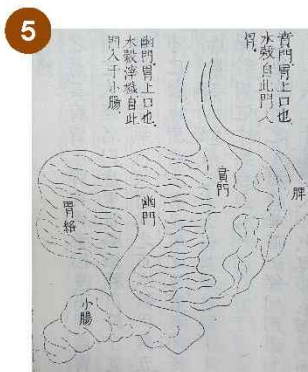 5
賁門.胃上口也.
水穀自此門入
胃.
幽門.胃上口也.
水穀滓穢自此
門入于小腸.
脾
賁門
幽門
胃絡
小腸